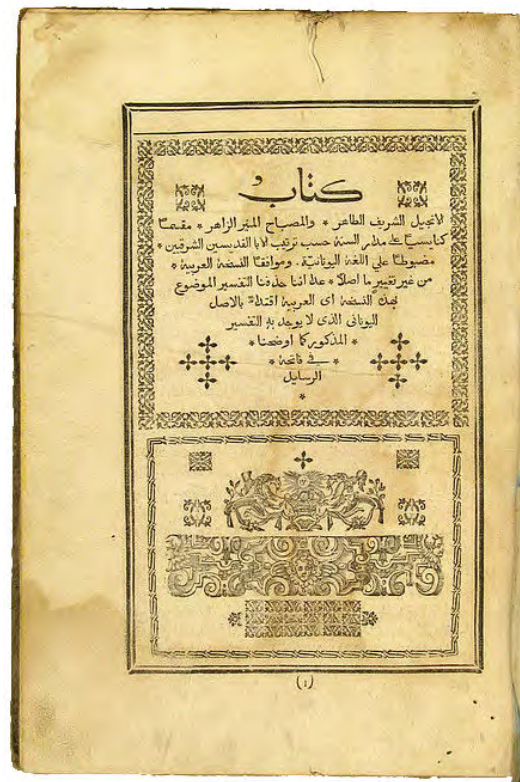 كتاب
الانجيل الشريف الطاهر * والمصباح المنير الزاهر * مقسمًا
كنايسيًا على مدار السنة حسب ترتيب الابا القديسين الشرقيين *
مضبوطًا علي اللغة اليونانية. وموافقًا النسخة العربية *
من غير تغيير ما اصلاً * عدا اننا حذفنا التفسير الموضوع
لهذه النسخة اى العربية اقتداءً بالاصل
اليوناني الذى لا يوجد به التفسير
* المذكور كما اوضحنا *
* في فاتحة *
الرسايل
*
(١)